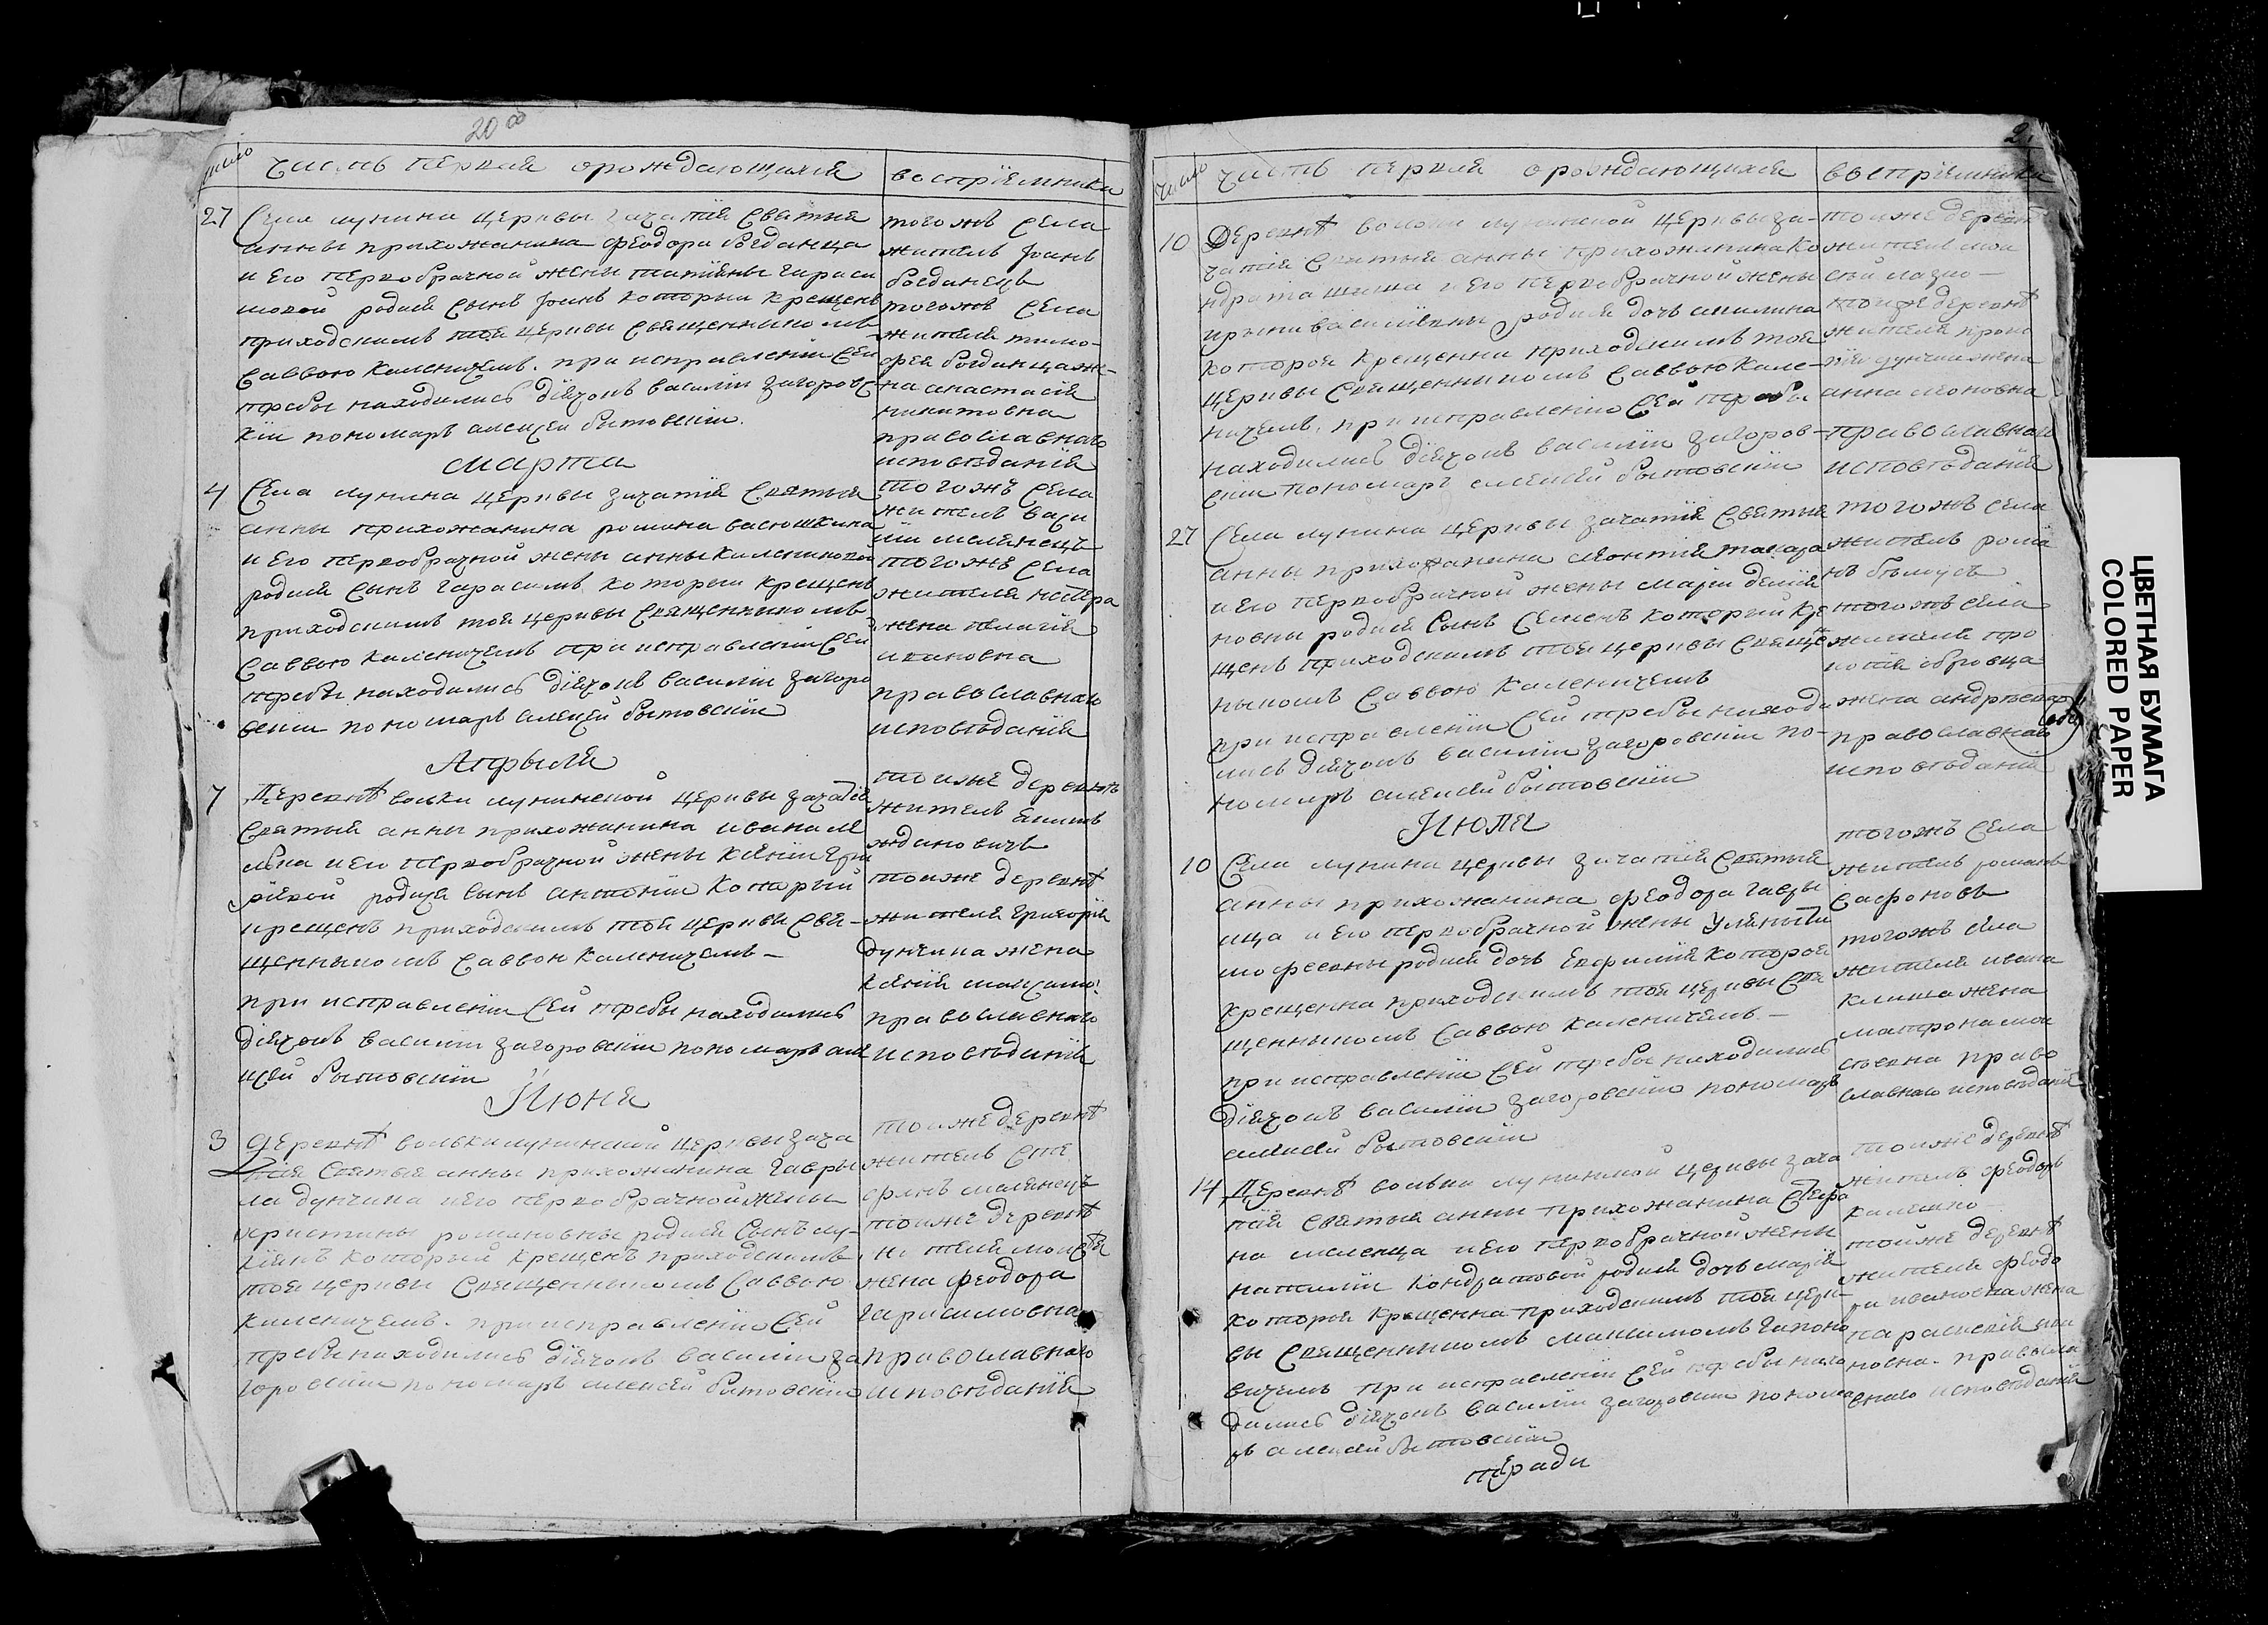 20 об
число
часть первая орождающихся
воспрiемники
27
Села лунина церквы зачатiя святыя
анны прихожанина феодора богданца
и его первобрачной жены татiяны гараси
мовой родися сынъ Iоанъ которыи крещенъ
приходскимъ тоя церквы священникомъ
саввою каленичемъ. при исправленiи сеи
требы находились дiячокъ василiи загоровс
кiи пономаръ алеѯеи бытовскiи.
тогожъ села
жителъ Iоанъ
богданецъ
тогожъ села
жителя тимо-
фея богданца же-
на анастасiя
никитовна
православнаго
исповѣданiя
марта
4
Села лунина церквы зачатiя святыя
анны прихожанина романа васюшкина
и его первобрачной жены анны калениковой
родися сынъ гарасимъ которыи крещенъ
приходскимъ тоя церквы священникомъ
саввою каленичемъ при исправленiи сей
требы находились дiячокъ василiи загоро
вскiи пономаръ алеѯеи бытовскiи
тогожъ села
жителъ васи
лiи маланецъ
тогожъ села
жителя нестера
жена пелагiя
ивановна
православнаго
исповѣданiя
Апрыля
7
Деревнѣ вольки лунинской церквы зачатiя
святыя анны прихожанина ивана
и его первобрачной жены ксѣнiи
родися сынъ антонiи которыи
крещенъ приходскимъ тоя церквы свя-
щенникомъ саввою каленичемъ-
при исправленiи сей требы находились
дiячокъ василiи загоровскiи пономаръ але
ѯѣи бытовскiи
тоиже деревнѣ
жителъ якимъ
ждановичъ
тоиже деревнѣ
жителя григорiя
дунчика жена
ксѣнiя
православнаго
исповѣданiя
Июня
3
Деревнѣ вольки лунинской церквы зача
тiя святыя анны прихожанина гаврыи
ла дунчика и его первобрачной жены
христины романовны родися сынъ лу-
кiянъ которыи крещенъ приходскимъ
тоя церквы священникомъ саввою
каленичемъ. при исправленiи сей
требы находились дiячокъ василiи за
горовскiи пономаръ алексѣи бытовскiи
тоиже деревнѣ
жителъ сте
фанъ маланецъ
тоиже деревнѣ
жителя моисея
жена феодора
гарасимовна
православнаго
исповѣданiя
число
часть первая орождающихся
воспрiемники
10
Деревнѣ вольки лунинской церквы за-
чатiя святыя анны прихожанина ко
ндрата шиша и его первобрачной жены
ирыны василiевны родися дочъ акилина
которая крещенна приходскимъ тоя
церквы священникомъ саввою кале-
ничемъ. при исправленiи сей требы
находились дiячокъ василiи загоров-
скiи пономаръ алексѣи бытовскiи
тоиже деревнѣ
жителъ мои
сѣй
тоиже деревнѣ
жителя проко
пiя дунчика жена
анна леоновна
православнаго
исповѣданiя
27
Села лунина церквы зачатiя святыя
анны прихожанина леонтiя
и его первобрачной жены марiи демiя
новны родися сынъ семенъ которыи кре
щенъ приходскимъ тоя церквы свяще
никомъ саввою каленичемъ
при исправленiи сей требы находи
лись дiячокъ василiи загоровскiи по-
номаръ алеѯеи бытовскiи
тогожъ села
жителъ рома
нъ бѣлоусъ
тогожъ села
жителя про
копiя обровца
жена андрѣевна
православнаго
исповѣданiя
Июля
10
Села лунина церквы зачатiя святыя
анны прихожанина феодора гавры
ица и его первобрачной жены уляны ти
мофеевны родися дочъ евфимiя которая
крещенна приходскимъ тоя церквы свя
щенникомъ саввою каленичемъ-
при исправленiи сей требы находились
дiячокъ василiи загоровскiи пономаръ
алексѣи бытовскiи
тогожъ села
жителъ романъ
сафоновъ
тогожъ села
жителя ивана
климша жена
матрона мои
сѣевна право
славнаго исповѣданiя
14
Деревнѣ вольки лунинской церквы зача
тiя святыя анны прихожанина стефа
на маленца и его первобрачной жены
наталiи кондратовой родися дочъ марiя
которая крещенна приходскимъ тоя церк-
вы священникомъ максимомъ гапоно
вичемъ при исправленiи сей требы нахо
дились дiячокъ василiи загоровскiи понома
ръ алексѣи бытовскiи
тоиже деревнѣ
жителъ феодоръ
тоиже деревнѣ
жителя феодо
ра ивановна жена
параскевiя
новна. правосла
внаго исповѣданiя
ЦВЕТНАЯ БУМАГА
COLORED PAPER